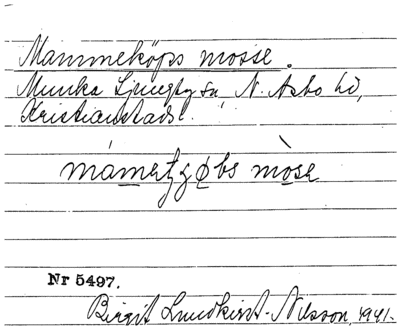 Mammeköps mosse.
Munka Ljungby sn, N. Åsbo hd,
Kristianstads l.
mòsa
Nr 5497.
Birgit Lundkvist-Nilsson, 1941.